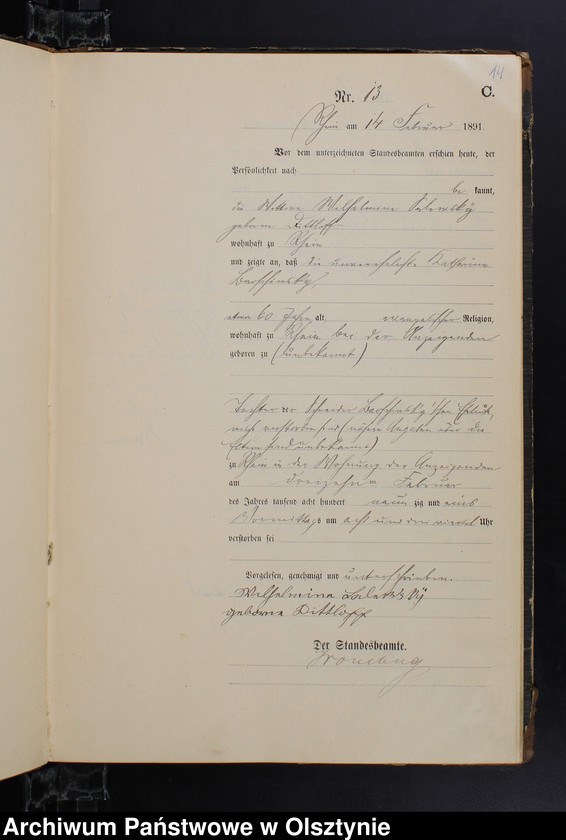 14
C.
Nr. 13
Rhein am 14 Februar 1891.
Vor dem unterzeichneten Standesbeamten erschien heute, der
Persönlichkeit nach
be kannt,
die Wittwe Wilhelmine
geborne Dittloff
wohnhaft zu Rhein
und zeigte an, daß die unverehelichte Katharina
etwa 60 Jahre alt, evangelischer Religion,
wohnhaft zu Rhein bei der Anzeigenden
geboren zu (unbekannt)
Tochter der Schneider
verstorben sind (nähere Angaben über die
Eltern sind unbekannt)
zu Rhein in der Wohnung der Anzeigenden
am dreizehn Februar
des Jahres tausend acht hundert neun zig und eins
Vormittags um acht und drei viertel Uhr
verstorben sei
Vorgelesen, genehmigt und unterschrieben.
Wilhelmine
geborne Dittloff
Der Standesbeamte.
Archiwum Państwowe w Olsztynie